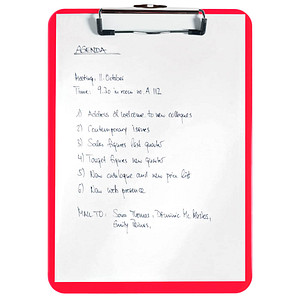 AGENDA
Meeting: 11. October
Time: 9.30 in room no. A 112
1) Address of welcome to new collegues
2) Contemporary issues
3) Sales figures last quarter
4) Target figures new quarter
5) New catalogue and new price list
6) New web presence
MAIL TO: Sam Thomas, Dominic Mc
Emily